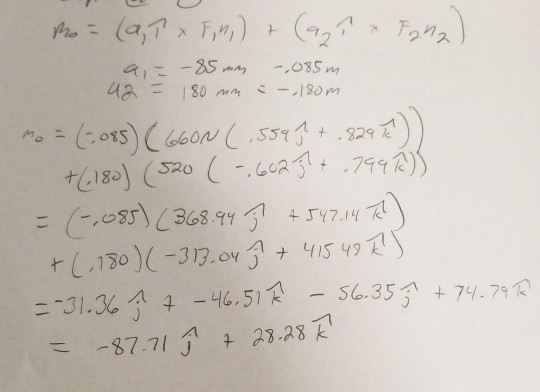 m₀ = (a₁î × F₁n₁) + (a₂î × F₂n₂)
a₁ = -85 mm -.085m
a2 = 180 mm = -.180m
m₀ = (-.085)(660N(.559ĵ + .829k̂))
+(.180)(520(-.602ĵ + .799k̂))
= (-.085)(368.94ĵ + 547.14k̂)
+(.180)(-313.04ĵ + 415.49k̂)
= -31.36ĵ + -46.51k̂ - 56.35ĵ + 74.79k̂
= -87.71ĵ + 28.28k̂